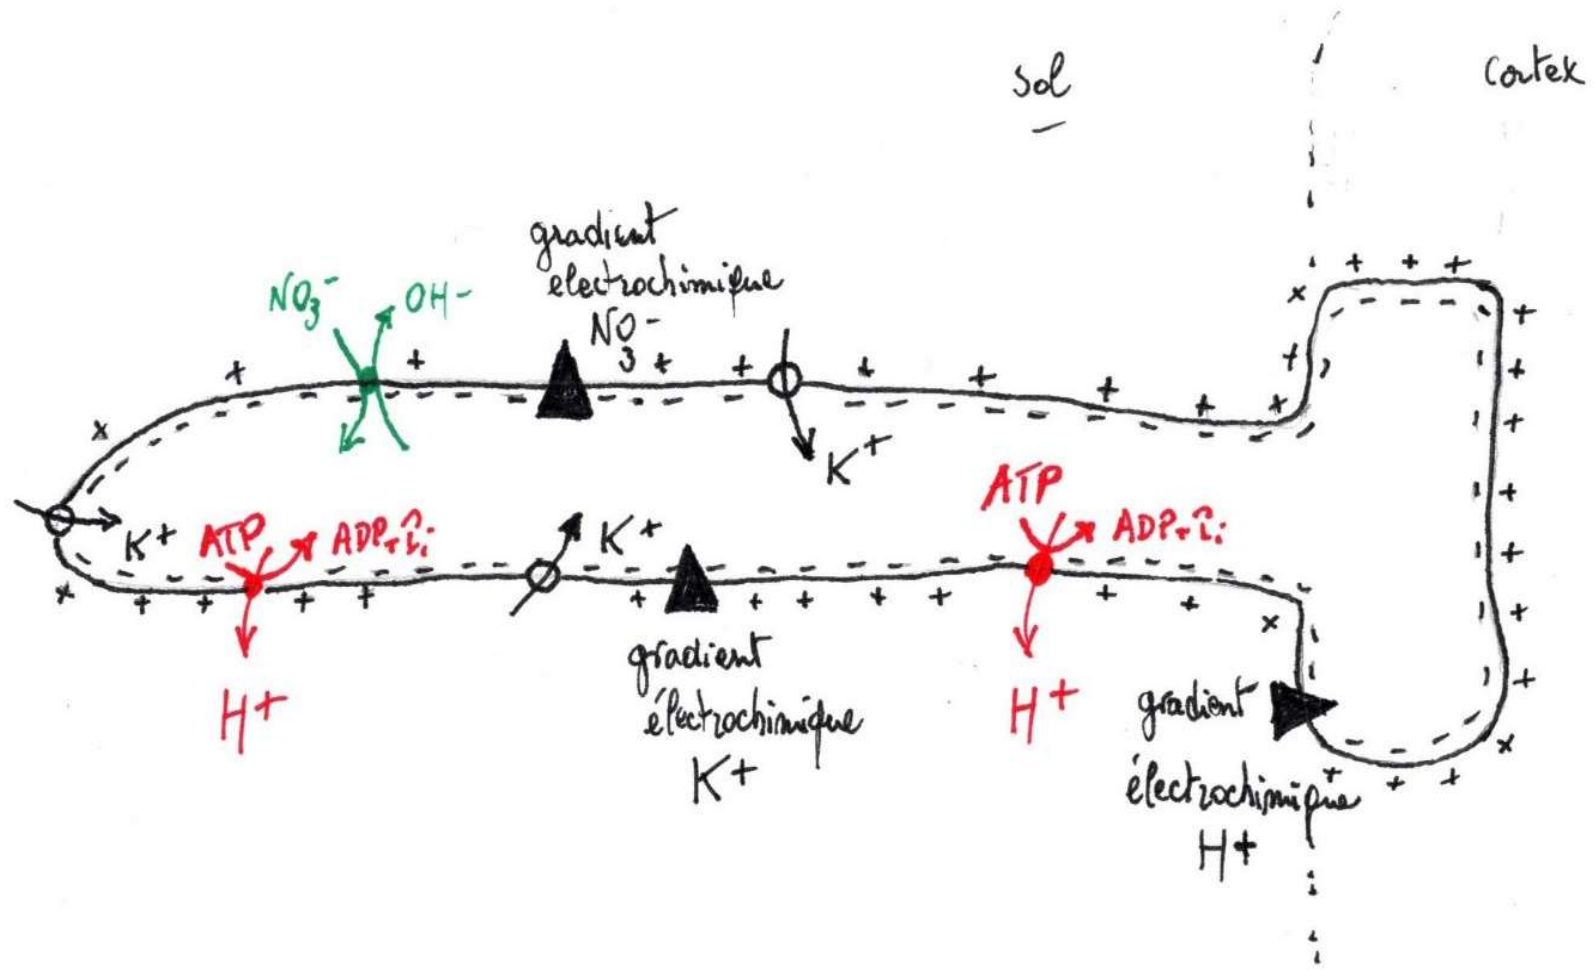 sol
cortex
gradient
electrochimique
NO3-
NO3-
OH-
K+
K+
ATP
ADP+Pi
K+
ATP
ADP+Pi
H+
gradient
électrochimique
K+
H+
gradient
électrochimique
H+